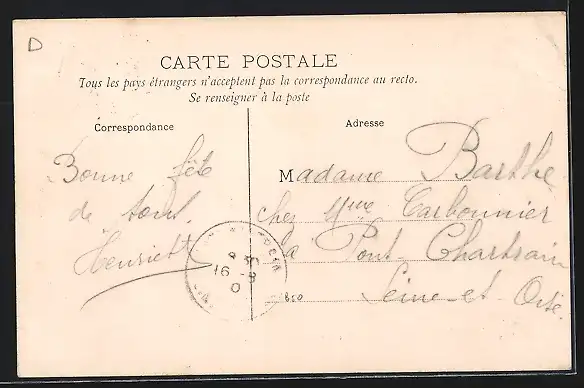 D
CARTE POSTALE
Tous les pays étrangers n'acceptent pas la correspondance au recto.
Se renseigner à la poste
Correspondance
Bonne fête
de tout.
Henriett
Adresse
Madame Barthe
chez Mme Carbonnier
Pont Chartrain
Seine-et-Oise.
16 -8